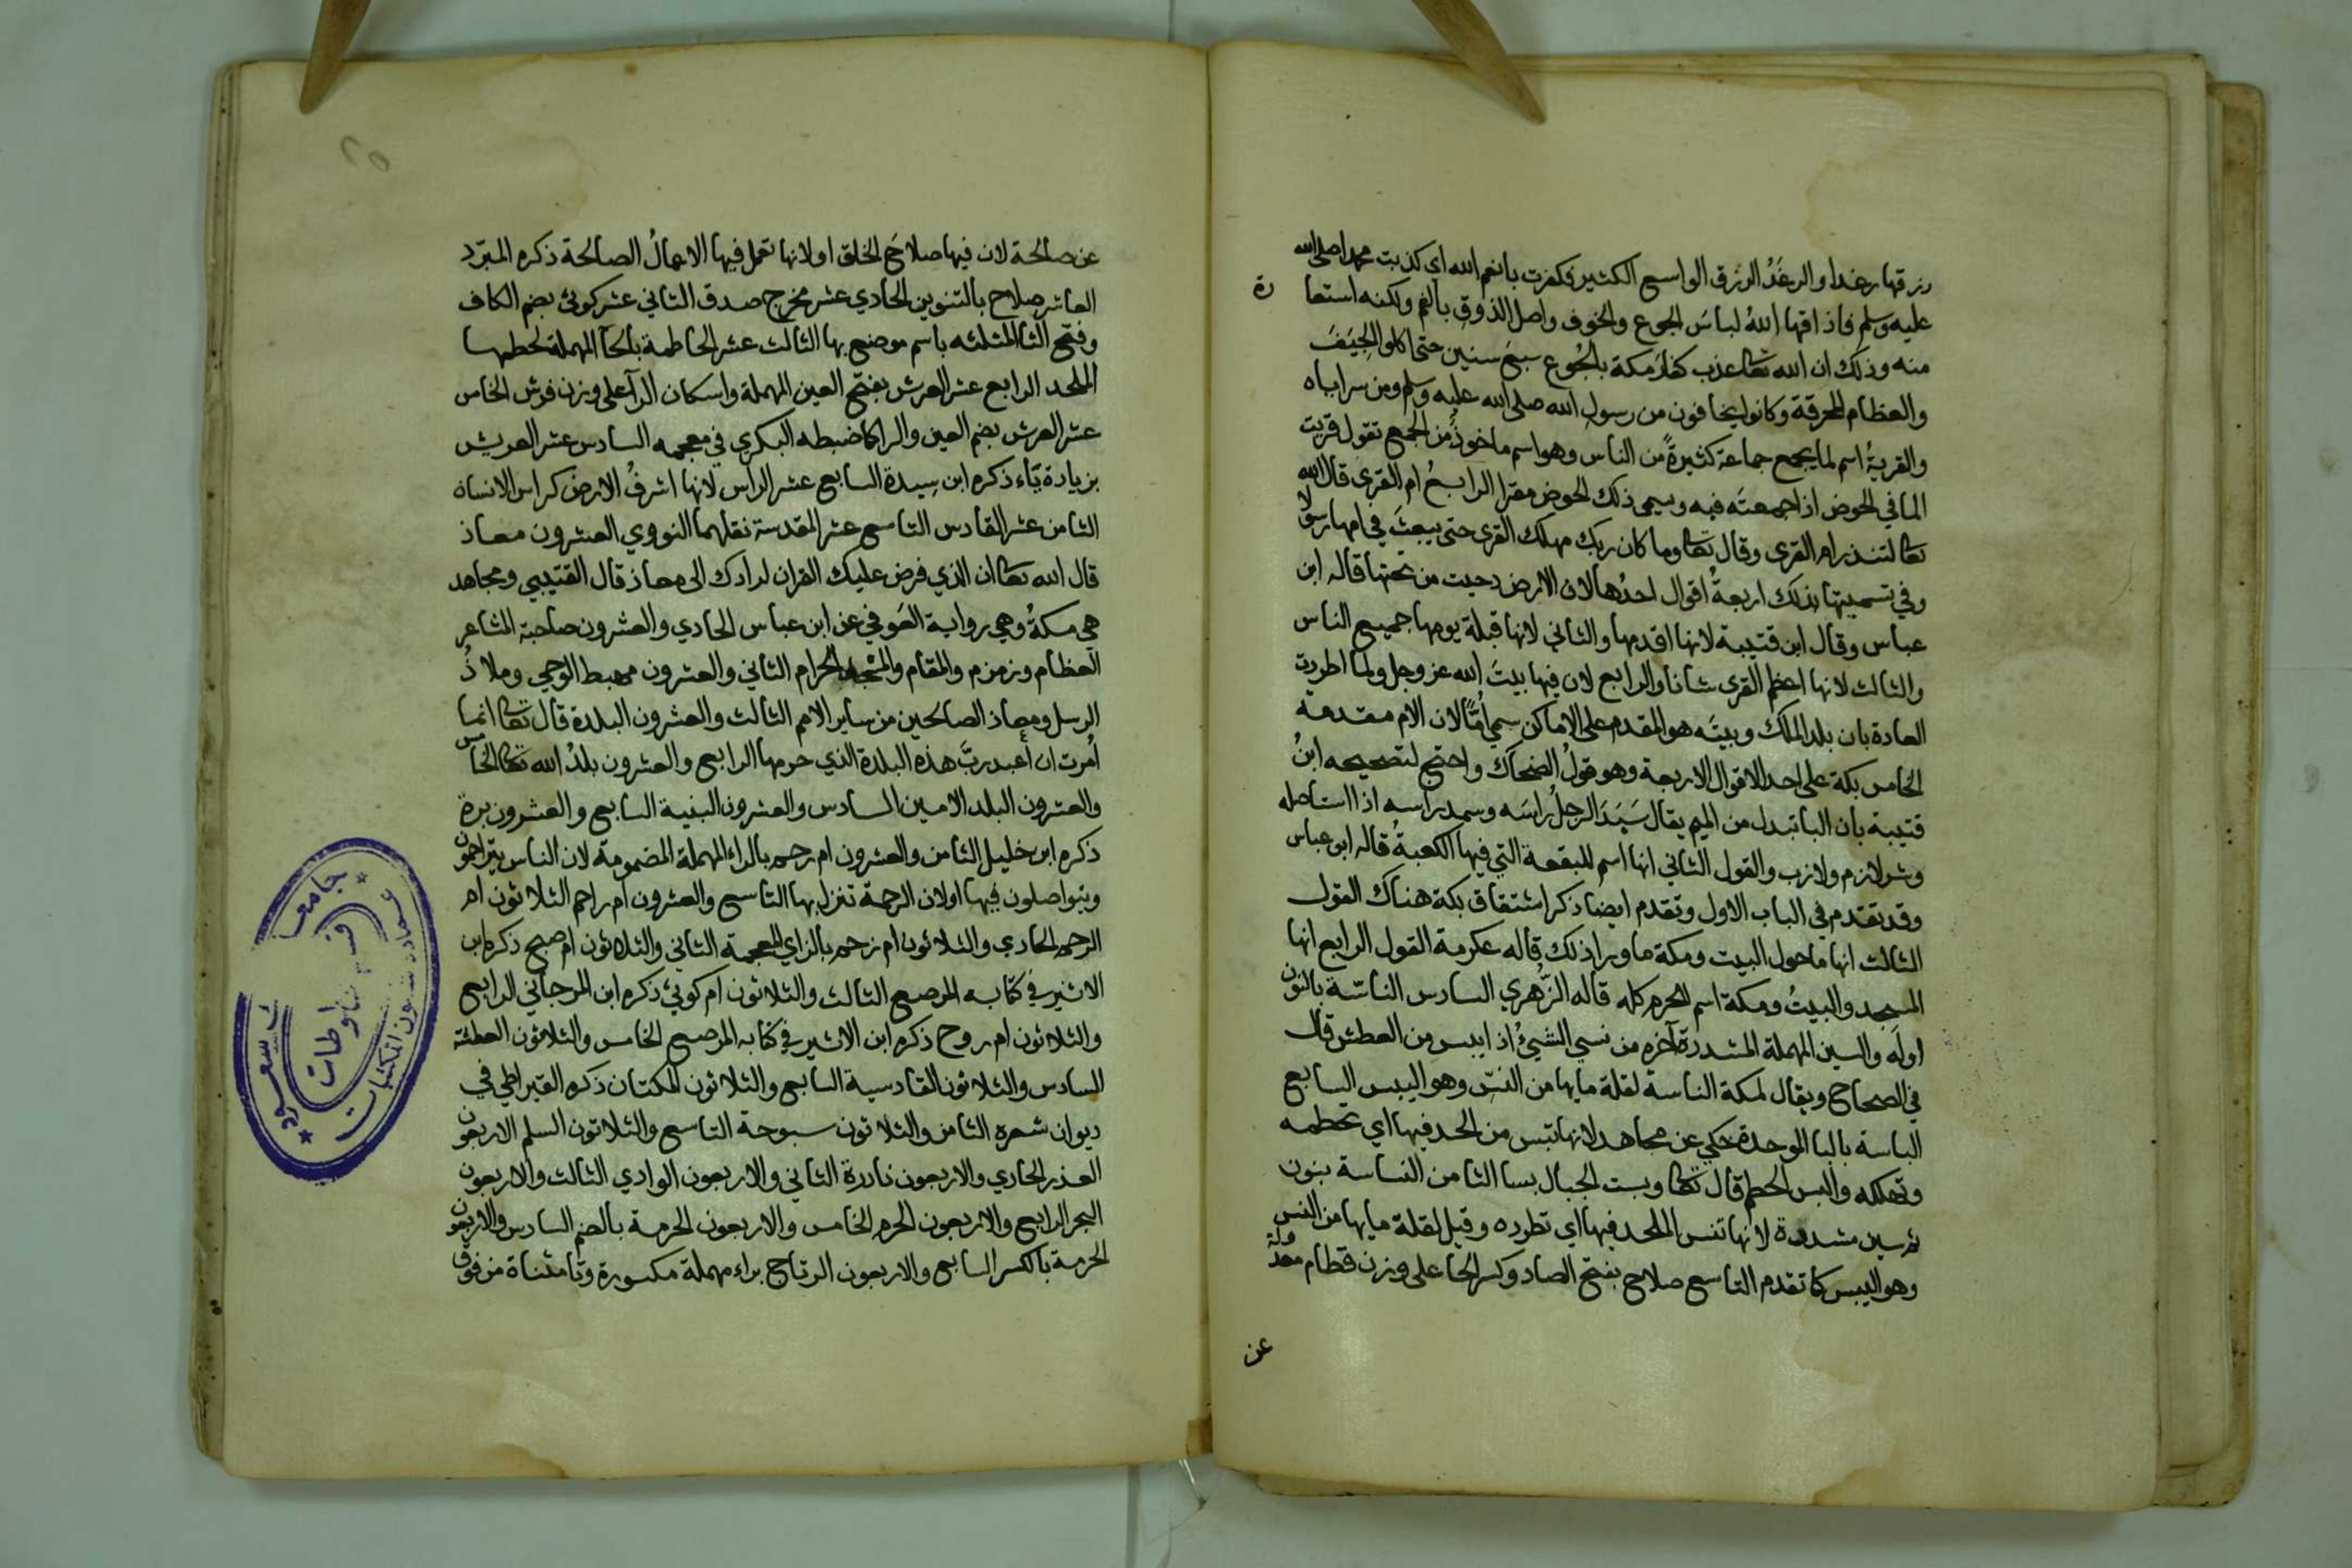 رزقها رغدا والرغَدُ الرزق الواسع الكثير فكفرت بانعم الله اي كذبت محمدا صلى الله
عليه وسلم فاذاقها اللهُ لباسَ الجوع والخوف واصل الذوق بالفم ولكنه استعا
رة
منه وذلك ان الله تعا عذب كفارَ مكة بالجُوع سبعَ سنين حتى اكلوا الجِيَفَ
والعظام المحرقة وكانوا يخافون من رسول الله صلى الله عليه وسلم ومن سراياه
والقريةُ اسم لما يجمع جماعة كثيرةً من الناس وهو اسم ماخوذٌ من الجمع تقول قريت
الما في الحوض اذا جمعتَه فيه وسمى ذلك الحوض مقرا الرابعُ ام القرى قال الله
تعا لتنذر ام القرى وقال تعا وما كان ربك مهلك القرى حتى يبعثَ في امها رسولا
وفي تسميتها بذلك اربعةُ اقوال احدُها لان الارض دحيت من تحتها قاله ابن
عباس وقال ابن قتيبة لانها اقدمها والثاني لانها قبلة يومها جميع الناس
والثالث لانها اعظم القرى شانا والرابع لان فيها بيتَ الله عز وجل ولما اطردت
العادة بان بلد الملك وبيتَه هو المقدم على الاماكن سمي اُمّاً لان الام مقدمة
الخامس بكة على احد الاقوال الاربعة وهو قولُ الضحاك واحتج لتصحيحه ابنُ
قتيبة بان الباتبدل من الميم يقال سَبَدَ الرجلُ راسَه وسمد راسه اذا استاصله
وشر لازم ولازب والقول الثاني انها اسم للبقعة التي فيها الكعبةُ قاله ابن عباس
وقد تقدم في الباب الاول وتقدم ايضا ذكر اشتقاق بكة هناك القول
الثالث انها ماحول البيت ومكة ماورا ذلك قاله عكرمة القول الرابع انها
المسجد والبيتُ ومكة اسم للحرم كله قاله الزُّهري السادس الناسّة بالنون
اولَه والسين المهملة المشددة آخره من نسي الشيئُ اذا يبس من العطش قال
في الصحاح ويقال لمكة الناسة لقلة مايها من النسّ وهو اليبس السابع
الباسة بالبا الموحدة حكي عن مجاهد لانها تبس من الحد فيها اي تحطمه
وتهلكه والبس الحطم قال تعا وبست الجبال بسا الثامن النساسة بنون
ثم سين مشددة لانها تنس الملحد فيها اي تطرده وقيل لقلة مايها من النس
وهو اليبس كما تقدم التاسع صلاح بفتح الصاد وكسر الحا على وزن قطام معدولة
عن
عن صالحة لان فيها صلاحَ الخلق او لانها تعمل فيها الاعمالُ الصالحة ذكره المبرّد
العاشر صلاح بالتنوين الحادي عشر مخرج صدق الثاني عشر كوثى بضم الكاف
وفتح الثا المثلثه باسم موضع بها الثالث عشر الحاطمة بالحآ المهملة لحطمها
الملحد الرابع عشر العرش بفتح العين المهملة واسكان الرآ على وزن فرش الخامس
عشر العرش بضم العين والرا كما ضبطه البكري في معجمه السادس عشر العريش
بزيادة يّاء ذكره ابن سِيدة السابع عشر الراس لانها اشرفُ الارض كراس الانسان
الثامن عشر القادس التاسع عشر المقدسة نقلهما النووي العشرون معاذ
قال الله تعا ان الذي فرض عليك القران لرادك الى معاذ قال القتيبي ومجاهد
هي مكةُ وهي رواية العَوفي عن ابن عباس الحادي والعشرون صاحبة المشاعر
العظام وزمزم والمقام والمسجد الحرام الثاني والعشرون مهبط الوحي وملاذُ
الرسل ومعاذ الصالحين من ساير الامم الثالث والعشرون البلدة قال تعا انما
اُمرت ان اَعبد ربَّ هذه البلدة الذي حرمها الرابع والعشرون بلدُ الله تعا الخامس
والعشرون البلد الامين السادس والعشرون البنية السابع والعشرون برة
ذكره ابن خليل الثامن والعشرون ام رحم بالراء المهملة المضمومة لان الناس يتراحمون
ويتواصلون فيها اولان الرحمة تنزل بها التاسع والعشرون ام راحم الثلاثون ام
الرحم الحادي والثلاثون ام زحم بالزاي المعجمة الثاني والثلاثون ام صبح ذكره ابن
الاثير في كتابه المرصع الثالث والثلاثون ام كوثى ذكره ابن المرجاني الرابع
والثلاثون ام روح ذكره ابن الاثير في كتابه المرصع الخامس والثلاثون العطشة
السادس والثلاثون القادسية السابع والثلاثون المكتان ذكره القيراطي في
ديوان شعره الثامن والثلاثون سبوحة التاسع والثلاثون السلم الاربعون
العذر الحادي والاربعون نادرة الثاني والاربعون الوادي الثالث والاربعون
البحر الرابع والاربعون الحرم الخامس والاربعون الحرمة بالضم السادس والاربعون
الحرمة بالكسر السابع والاربعون الرتاج براء مهملة مكسورة وتا مثناة من فوق
٢٥
جامعة
سعود
عمادة شئون المكتبات